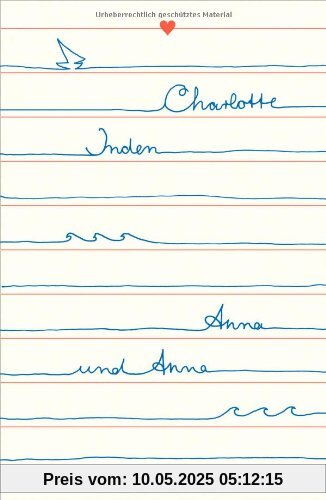 Urheberrechtlich geschütztes Material
Charlotte
Inden
Anna
und Anna
Preis vom: 10.05.2025 05:12:15